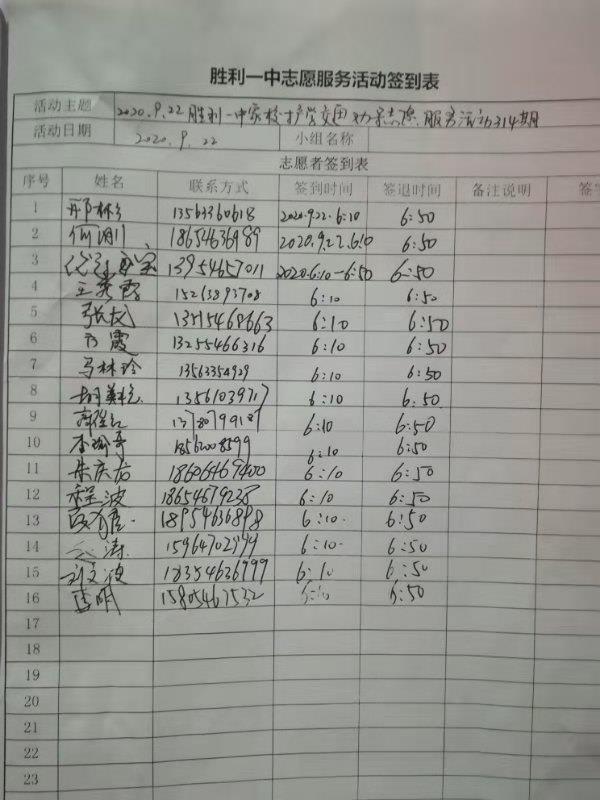 胜利一中志愿服务活动签到表
活动主题 2020.9.22胜利一中家校护学交通劝导志愿服务活动314期
活动日期 2020.9.22 小组名称
志愿者签到表
序号 姓名 联系方式 签到时间 签退时间 备注说明 签字
1 13563360618 2020.9.22.6:10 6:50
2 18654636989 2020.9.22.6:10 6:50
3 13954657011 2020.6:10-6:50 6:50
4 王秀霞 15263893708 6:10 6:50
5 张成 13515468663 6:10 6:50
6 13255466316 6:10 6:50
7 马林玲 13563354929 6:10 6:50
8 胡美 13561039717 6:10 6:50
9 6:10 6:50
10 6:10 6:50
11 6:10 6:50
12 程波 18654619238 6:10 6:50
13 18954636898 6:10 6:50
14 涛 15964702999 6:10 6:50
15 波 18354636999 6:10 6:50
16 李明 15805467532 6:10 6:50
17
18
19
20
21
22
23